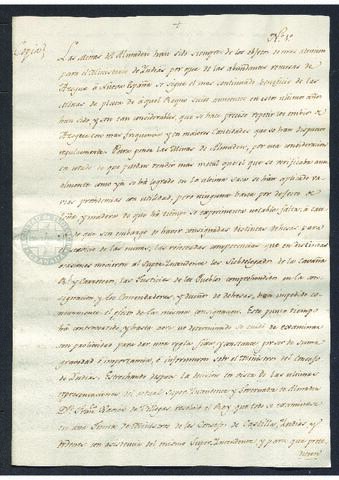 N.º 1º
Copia
Las Minas del Almaden han sido siempre de los objetos de mas atencion
para el Ministerio de Indias por que de las abundantes remesas de
Azogue à Nueva España se sigue el mas continuado beneficio de las
Minas de plata de aquel Reyno cuios aumentos en estos ultimos años
han sido, y son tan considerables, que se hace preciso repetir los embios de
Azogue con mas frequencia y en maiores Cantidades que se han despachado
regularmente. Para poner las Minas de Almaden, por una consideracion
en estado de que puedan rendir mas metal que el que se verificaba anu-
almente como ya se há logrado en la ultima saca se han aplicado varias
providencias con utilidad, pero ninguna basta por defecto de
leña y madera de que há tiempo se experimenta notable falta, à causa
de que sin embargo de haver consignadas distintas dehesas para
de las minas, las reiteradas competencias que en distintas
ocasiones movieron al Super-Intendente los Subdelegados de la Cavaña
R.l y Carreteria, las Justicias de los Pueblos comprehendidos en la con-
signacion, y los Comendadores, y dueños de dehesas, han impedido co-
munmente el efecto de la misma consignacion. Este punto tiempo
há controvertido, y hasta ahora no determinado se cuidó de examinar
con prolixidad para dar una regla fixa y constante por ser de suma
gravedad è importancia, è informaron sobre el Ministros del Consejo
de Indias. Estrechando despues la decision en vista de las ultimas
representaciones del actual Super-Intendente y Governador de Almaden
D.n Fran.co de Villegas resolvió el Rey que todo se examinase
en una Junta de Ministros de los Consejos de Castilla, Indias, y
Ordenes con asistencia del mismo Super-Intendente y para que pudie-